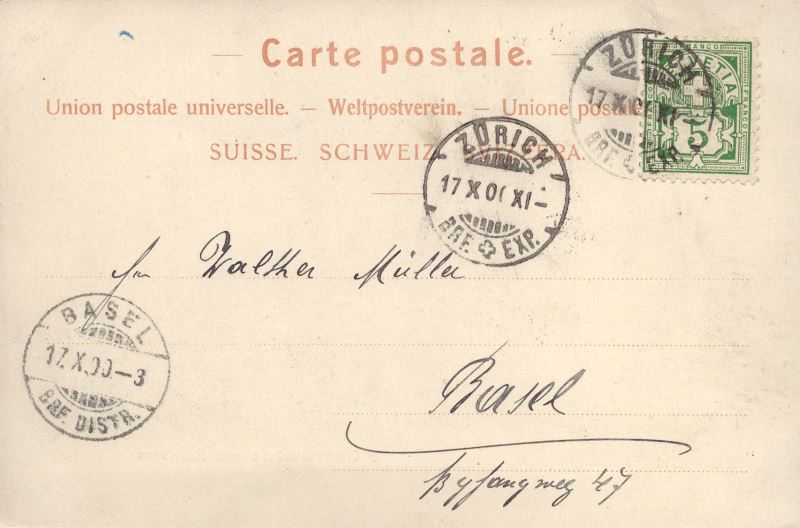 Carte postale.
Union postale universelle. — Weltpostverein. — Unione postale
SUISSE. SCHWEIZ. SVIZZERA.
FRANCO
HELVETIA
5
ZÜRICH
17 X 00 XI —
BRF. EXP.
ZÜRICH
17 X 00 XI —
BRF. EXP.
Walther Müller
BASEL
17. X. 00. — 3
BRF. DISTR.
Basel
Byfangweg 47